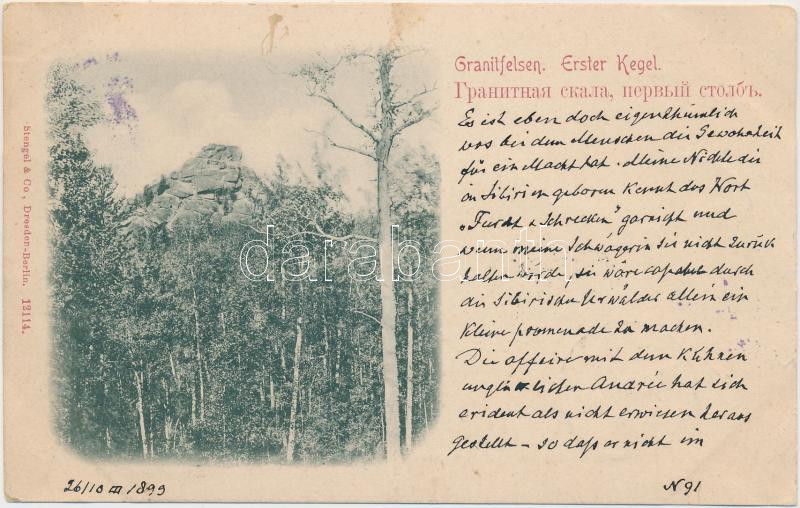 Granitfelsen. Erster Kegel.
Гранитная скала, первый столбъ.
Es ist eben doch eigenthümlich
was bei dem Menschen die Gewohnheit
für ein Macht hat. Meine Nichte die
in Sibirien geboren kennt das Wort
„Furcht & Schrecken" garnicht und
wenn meine Schwägerin sie nicht zurück
halten würde, sie wäre capabel durch
die Sibirische Urwälder allein ein
kleine promenade zu machen.
Die affeire mit dem Kühnen
unglücklichen Andrée hat sich
evident als nicht erwiesen heraus
gestellt – so daß er nicht im
26/10 III 1899
N 91
Stengel & Co., Dresden-Berlin. 12114.
darabanth